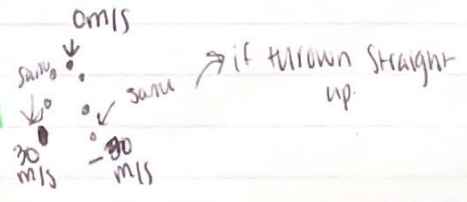 0m/s
same
same
if thrown straight
up.
30
m/s
-30
m/s